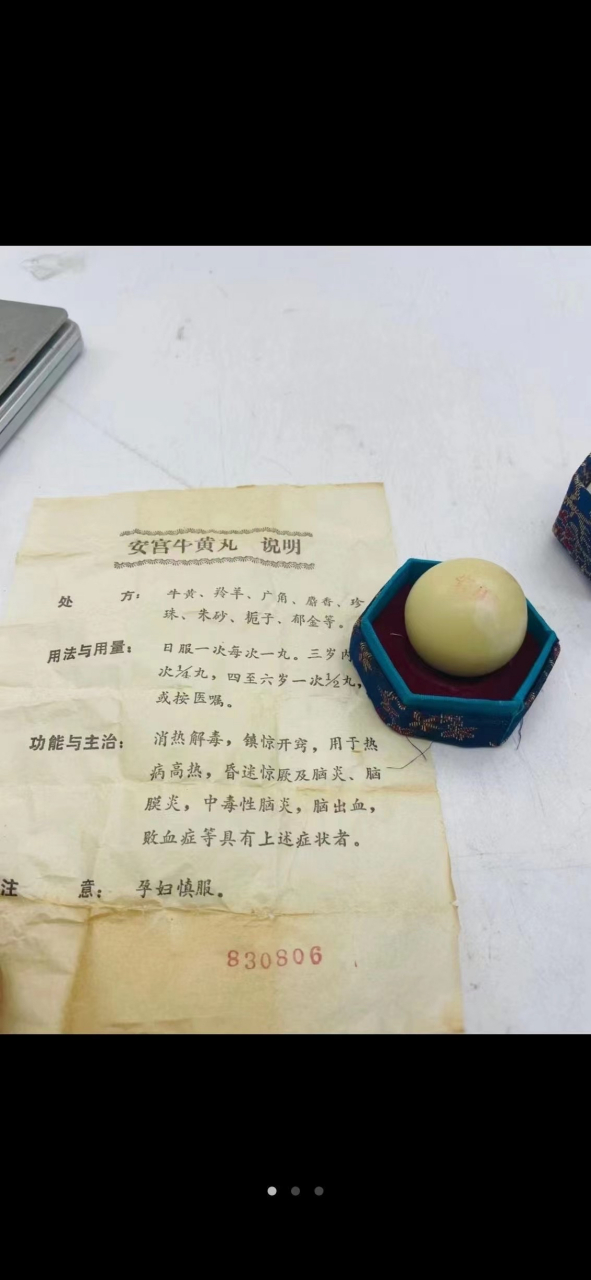 安宫牛黄丸 说明
处 方: 牛黄、羚羊、广角、麝香、珍
珠、朱砂、栀子、郁金等。
用法与用量: 日服一次每次一丸。三岁内
次¼丸，四至六岁一次½丸，
或按医嘱。
功能与主治: 消热解毒，镇惊开窍，用于热
病高热，昏迷惊厥及脑炎、脑
膜炎，中毒性脑炎，脑出血，
败血症等具有上述症状者。
注 意: 孕妇慎服。
830806